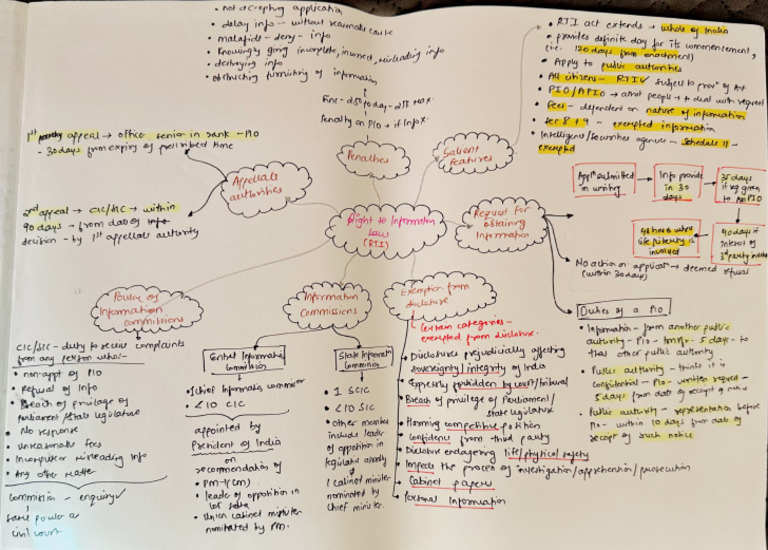 • not accepting application
• delay info - without reasonable cause
• malafide - deny - info
• Knowingly giving incomplete, incorrect, misleading info
• destroying info
• obstructing furnishing of information
Fine - 250/day - 25K max.
Penalty on PIO → if Info X
Penalties
• RTI act extends → whole of India
• provides definite day for its commencement,
(i.e. 120 days from enactment)
• Apply to public authorities
• All citizens - RTI✓ subject to provn of Act
• PIO/APIO → people → to deal with request
• Fees - dependent on nature of information
• Sec 8 & 9 - exempted information
• Intelligence/securities agencies - Schedule II -
exempted
Salient
Features
1st appeal → officer senior in rank - PIO
- 30 days from expiry of prescribed time
2nd appeal → CIC/SIC → within
90 days → from date of info
decision - by 1st appellate authority
Appellate
authorities
Right to Information
Law
(RTI)
Request for
obtaining
Information
Appln submitted
in writing
Info provide
in 30
days
35 days
if req given
to APIO
40 days if
interest of
3rd party
48 hours when
life/liberty is
involved
No action on applicatn → deemed refusal
(within 30 days)
Duties of a PIO
• Information - from another public
authority - PIO - transfr - 5 days - to
that other public authority
• Public authority - thinks it is
confidential - PIO - written request -
5 days from date of receipt of
• Public authority - representation before
PIO - within 10 days from date of
receipt of such notice
Power of
Information
Commissions
CIC/SIC - duty to receive complaints
from any person who:-
• non-appt of PIO
• Refusal of Info
• Breach of privilage of
parliament/state legislature
• No response
• unreasonable fees
• Incomplete or misleading info
• Any other matter
Commission - enquiry✓
civil court
Information
Commissions
Central Information
Commission
• 1 Chief Information commissioner
• <10 CIC
appointed by
President of India
on
recommendation of
• PM - (CM)
• leader of opposition in
lok sabha
• Union cabinet minister
nominated by PM.
State Information
Commission
• 1 SCIC
• <10 SIC
• other member
include leader
of opposition in
legislative assembly
&
1 cabinet minister
nominated by
Chief minister.
Exemption from
disclosure
Certain categories -
exempted from disclosure.
• Disclosures prejudicially affecting
sovereignty/integrity of India
• Expressly forbidden by court/tribunal
• Breach of privilege of Parliament/
state legislature
• Harming competitive position
• Confidence from third party
• Disclosure endagering life/physical safety
• Impede the process of investigation/apprehension/prosecution
• Cabinet papers
• Personal Information